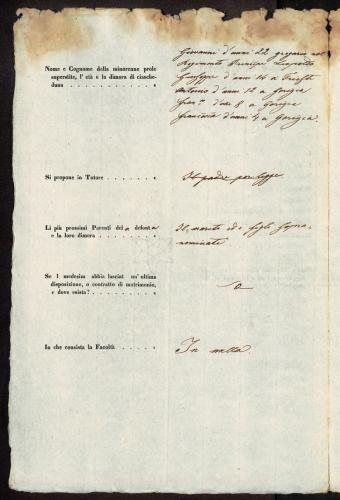 Nome e Cognome della minorenne prole
superstite, l' età e la dimora di ciasche-
duna . . . . . . . . . . .
Giovanni d'anni 22 gregario nel
Reggimento Principe Leopoldo
Giuseppe d'anni 14 a Trieste
Antonio d'anni 12 a Gorizia
Fran.º d'anni 8 a Gorizia
Francesca d'anni 4 a Gorizia.
Si propone in Tutore . . . . . . .
Il padre per legge
Li più prossimi Parenti della defonta
e la loro dimora . . . . . . . .
Il marito ed i figli sopra-
nominati
Se I medesim abbia lasciat un' ultima
disposizione, o contratto di matrimonio,
e dove esista? . . . . . . . . .
o
In che consista la Facoltà . . . . . .
In nulla.